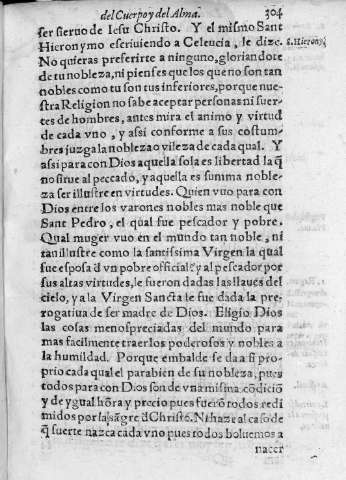 del Cuerpo y del Alma. 304
ser sieruo de Iesu Christo. Y el mismo Sant
Hieronymo escriuiendo a Celencia, le dize. S. Hierony.
No quieras preferirte a ninguno, gloriandote
de tu nobleza, ni pienses que los que no son tan
nobles como tu son tus inferiores, porque nue-
stra Religion no sabe aceptar personas ni suer-
tes de hombres, antes mira el animo y virtud
de cada vno, y assi conforme a sus costum-
bres juzga la nobleza o vileza de cada qual. Y
assi para con Dios aquella sola es libertad la q̃
no sirue al peccado, y aquella es summa noble-
za ser illustre en virtudes. Quien vuo para con
Dios entre los varones nobles mas noble que
Sant Pedro, el qual fue pescador y pobre.
Qual muger vuo en el mundo tan noble, ni
tan illustre como la santissima Virgen la qual
fue esposa d̃ vn pobre official? y al pescador por
sus altas virtudes, le fueron dadas las llaues del
cielo, y a la Virgen Sancta le fue dada la pre-
rogatiua de ser madre de Dios. Eligio Dios
las cosas menospreciadas del mundo para
mas facilmente traer los poderosos y nobles a
la humildad. Porque embalde se da a si pro-
prio cada qual el parabien de su nobleza, pues
todos para con Dios son de vna misma cõdiciõ
y de ygual hõra y precio pues fuerõ todos redi
midos por la sãgre d̃ Christo. Ni haze al caso de
q̃ suerte nazca cada vno pues todos boluemos a
nacer